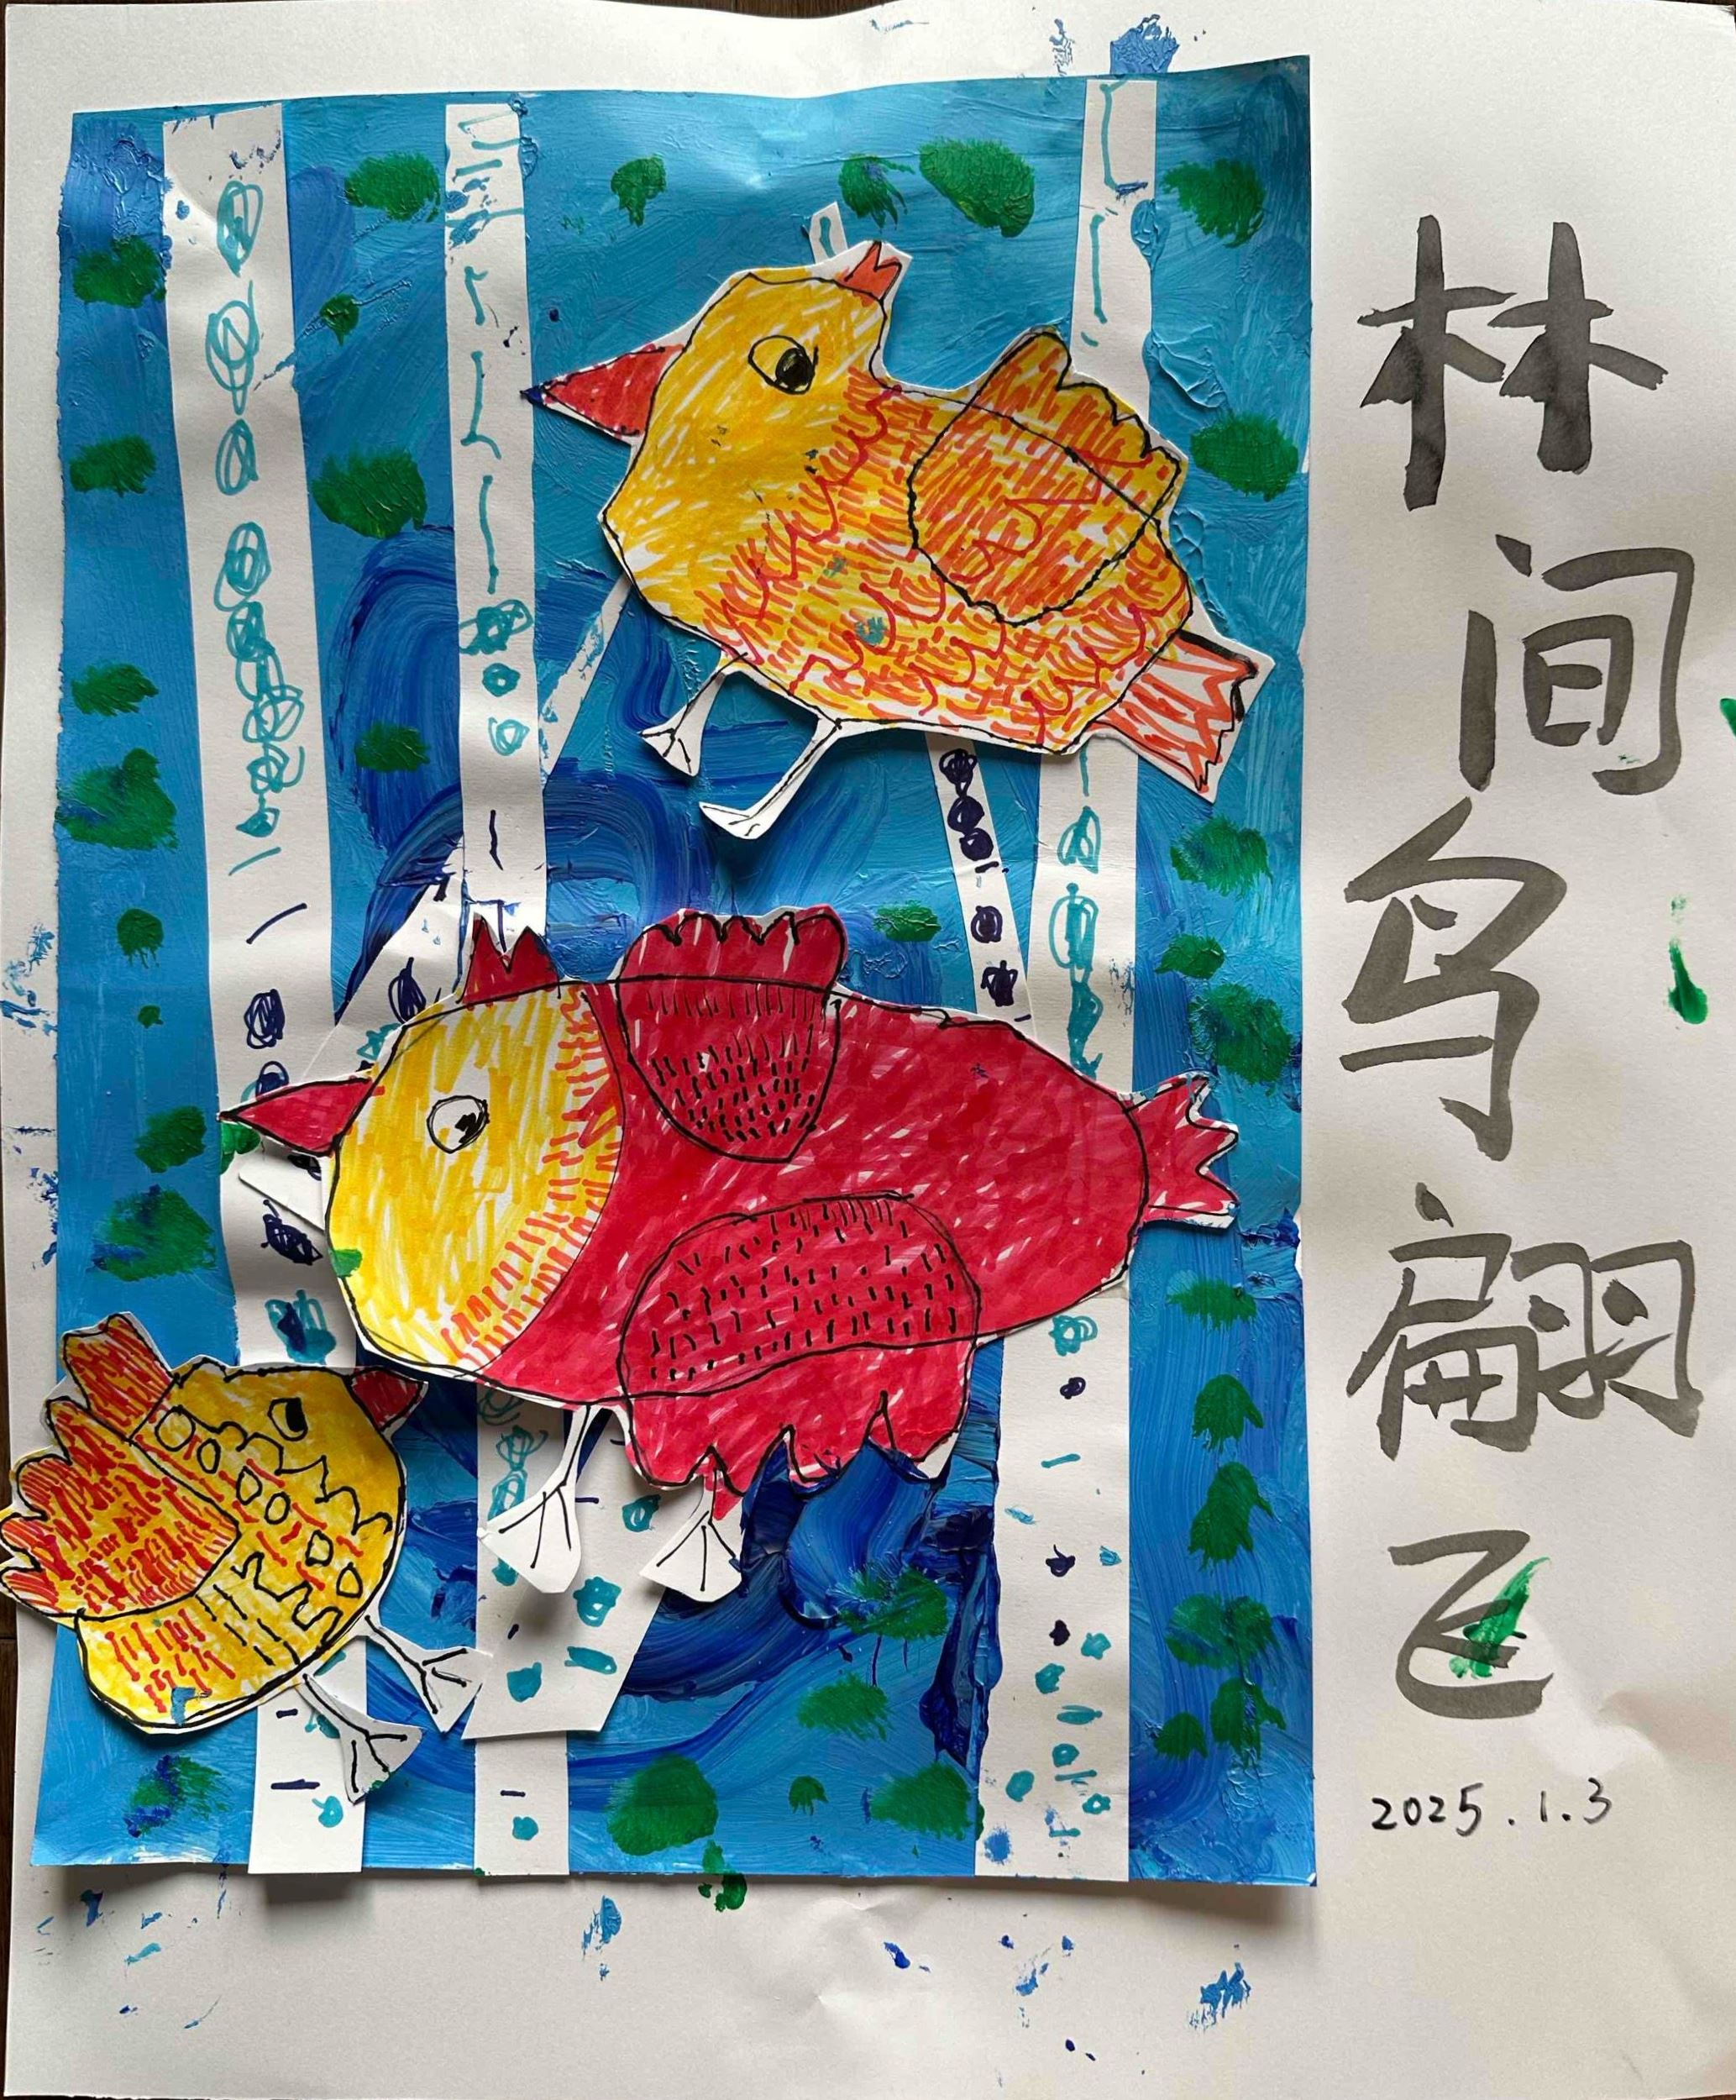 林间鸟翩飞
2025.1.3